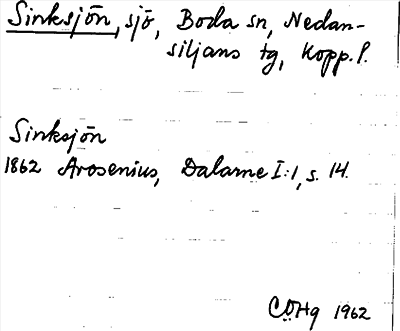 Sinksjön, sjö, Boda sn, Nedan-
siljans tg, Kopp. l.
Sinksjön
1862 Arosenius, Dalarne I:1, s. 14.
CÖHg 1962